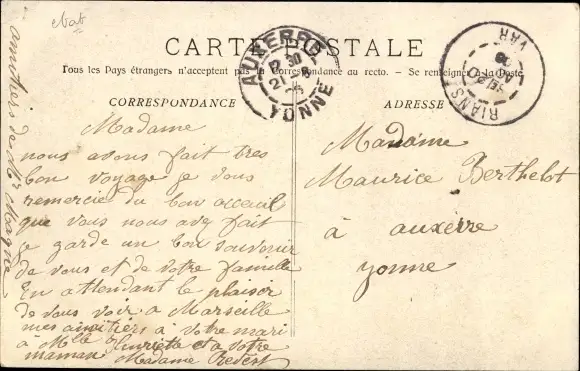 CARTE POSTALE
Tous les Pays étrangers n'acceptent pas la Correspondance au recto. – Se renseigner à la Poste
CORRESPONDANCE
ADRESSE
AUXERRE
YONNE
RIANS
VAR
Madame
nous avons fait tres
bon voyage je vous
remercie du bon acceuil
que vous nous avez fait
je garde un bon souvenir
de vous et de votre famille
En attendant le plaisir
de vous voir a Marseille
mes amitiers à votre mari
à Mlle Henriette et a votre
maman Madame
amitiers de Mr
Madame
Maurice Berthelot
à auxerre
yonne